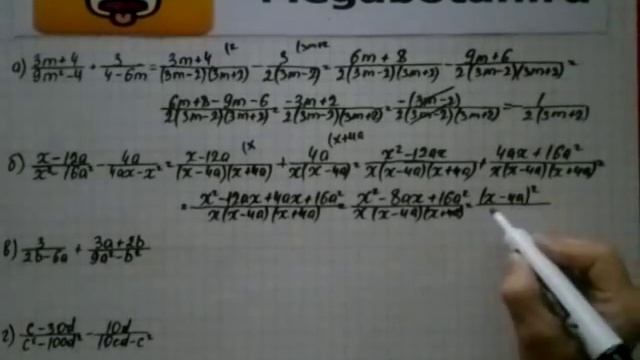 а) (3m+4)/(9m²-4) + 3/(4-6m) = (3m+4)/((3m-2)(3m+2)) - 3/(2(3m-2)) = (6m+8)/(2(3m-2)(3m+2)) - (9m+6)/(2(3m-2)(3m+2)) =
(6m+8-9m-6)/(2(3m-2)(3m+2)) = (-3m+2)/(2(3m-2)(3m+2)) = (-(3m-2))/(2(3m-2)(3m+2)) = -1/(2(3m+2))
б) (x-12a)/(x²-16a²) - 4a/(4ax-x²) = (x-12a)/((x-4a)(x+4a)) + 4a/(x(x-4a)) = (x²-12ax)/(x(x-4a)(x+4a)) + (4ax+16a²)/(x(x-4a)(x+4a)) =
= (x²-12ax+4ax+16a²)/(x(x-4a)(x+4a)) = (x²-8ax+16a²)/(x(x-4a)(x+4a)) = (x-4a)²
в) 3/(2b-6a) + (3a+2b)/(9a²-b²)
г) (c-30d)/(c²-100d²) - 10d/(10cd-c²)